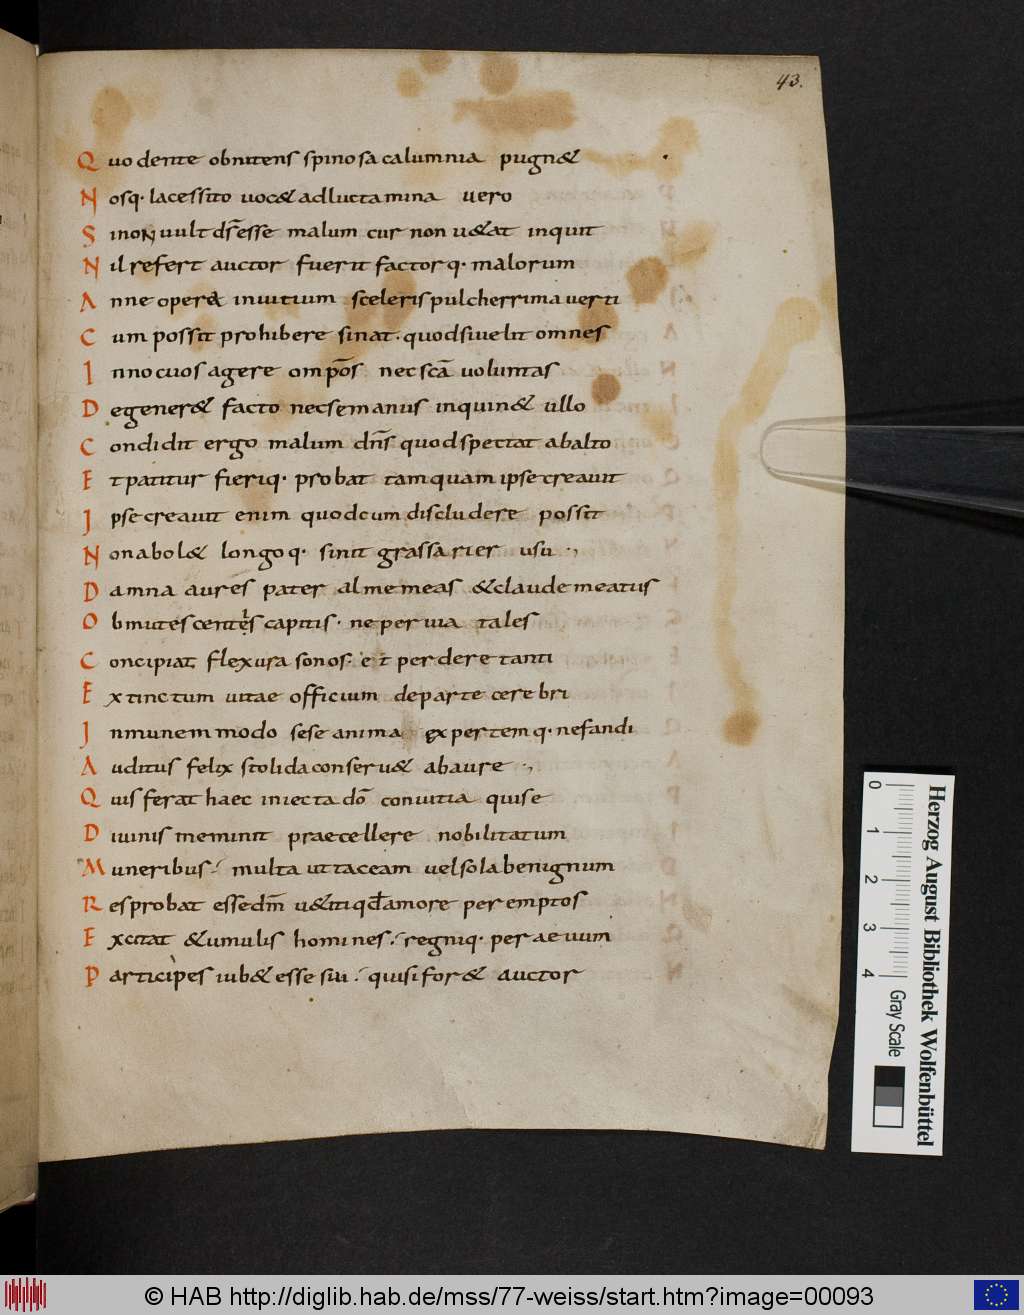 43.
Quo dente obnitens spinosa calumnia pugn&
Nosq· lacessito uoc& adluctamina vero
Si non uult ds̄ esse malum cur non u&at inquit
Nil refert auctor fuerit factorq· malorum
Anne opera inuitium sceleris pulcherrima verti
Cum possit prohibere sinat· quod si uelit omnes
Innocuos agere omp̄os nec scā uoluntas
Degener& facto nec se manus inquin& ullo
Condidit ergo malum dn̄s quod spectat ab alto
Et patitur fieriq· probat tamquam ipse creauit
Ipse creauit enim quod cum discludere possit
Non abol& longoq· sinit grassarier usu ·,
Damna aures pater alme meas &claude meatus
Obmutescentes capitis· ne peruia tales
Concipiat flexura sonos· et perdere tanti
Extinctum uitae officium de parte cerebri
Inmunem modo sese anima expertemq· nefandi
Auditus felix stolida conseru& ab aure ·,
Quis ferat haec iniecta dō conuitia qui se
Diuinis meminit praecellere nobilitatum
Muneribus· multa ut taceam uel sola benignum
Res probat esse dm̄ u&iti qđ amore peremptos
Excitat &umulis homines· regniq· per aeuum
Participes iub& esse sui· qui si for& auctor
Herzog August Bibliothek Wolfenbüttel
0 1 2 3 4 Gray Scale
© HAB http://diglib.hab.de/mss/77-weiss/start.htm?image=00093